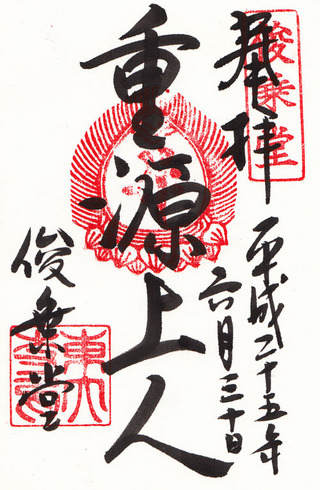 奉拝
俊乗堂
平成二十五年
六月三十日
重源上人
俊乗堂